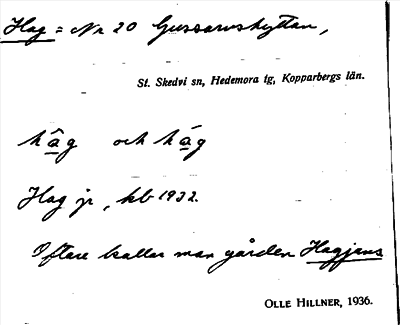 Hag = Nr 20 Gussarvshyttan,
St. Skedvi sn, Hedemora tg, Kopparbergs län.
hâg och hág
Hag jr, kb 1932.
Oftare kallar man gården Hagjans
OLLE HILLNER, 1936.